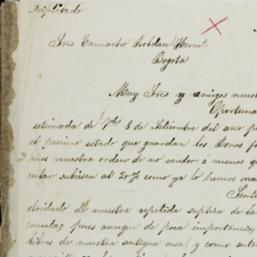 Duplicado
Sres Camacho Roldan Herms
Bogotá
Muy Sres y amigos nuest
Oportuna
estimada de Vds 8 de Setiembre del año
el pesimo estado que guardan los
nuestra orden de no vender a menos q
subiesen al 20% como ya lo hemos
olvidado de nuestra repetida suplica de la
cuentas, pues aunque de poca importancia,
libros de nuestra antigua casa y como